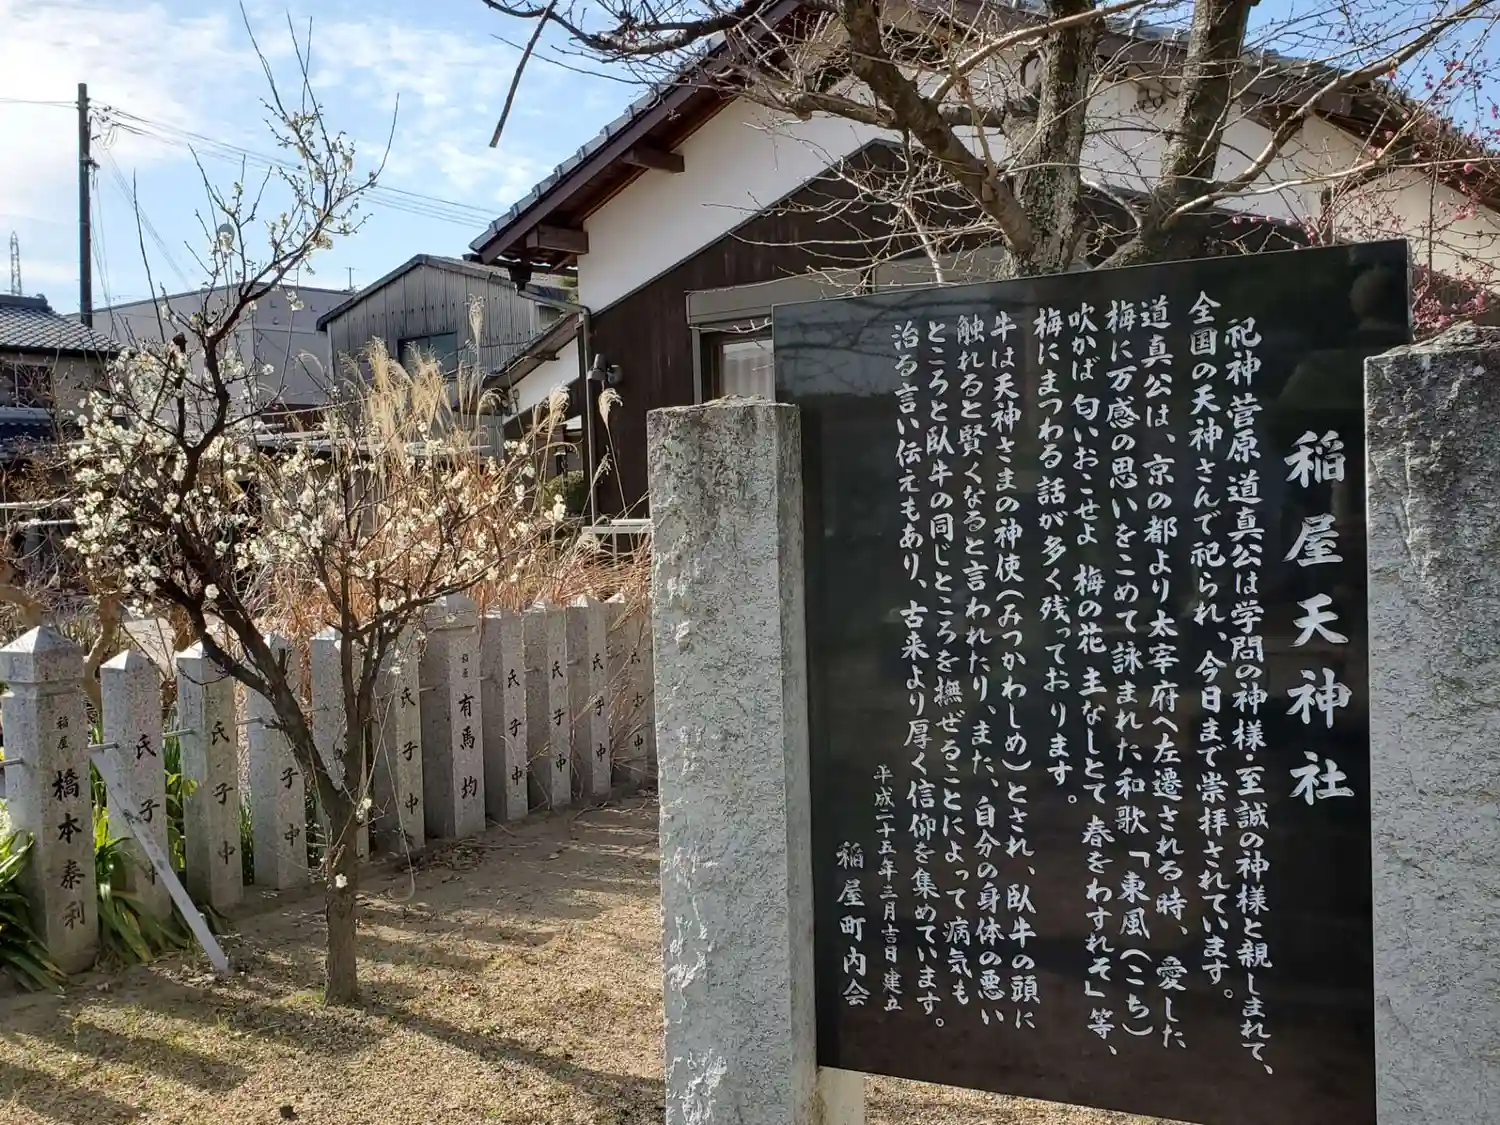 稲屋天神社
祀神菅原道真公は学問の神様・至誠の神様と親しまれて、
全国の天神さんで祀られ、今日まで崇拝されています。
道真公は、京の都より太宰府へ左遷される時、愛した
梅に万感の思いをこめて詠まれた和歌「東風(こち)
吹かば 匂いおこせよ 梅の花 主なしとて 春をわすれそ」等、
梅にまつわる話が多く残っております。
牛は天神さまの神使(みつかわしめ)とされ、臥牛の頭に
触れると賢くなると言われたり、また、自分の身体の悪い
ところと臥牛の同じところを撫ぜることによって病気も
治る言い伝えもあり、古来より厚く信仰を集めています。
平成二十五年三月吉日建立
稲屋町内会
稲屋 橋本泰利
氏子中
氏子中
子中
氏子中
稲屋 有馬均
氏子中
氏子中
氏子中
氏子中